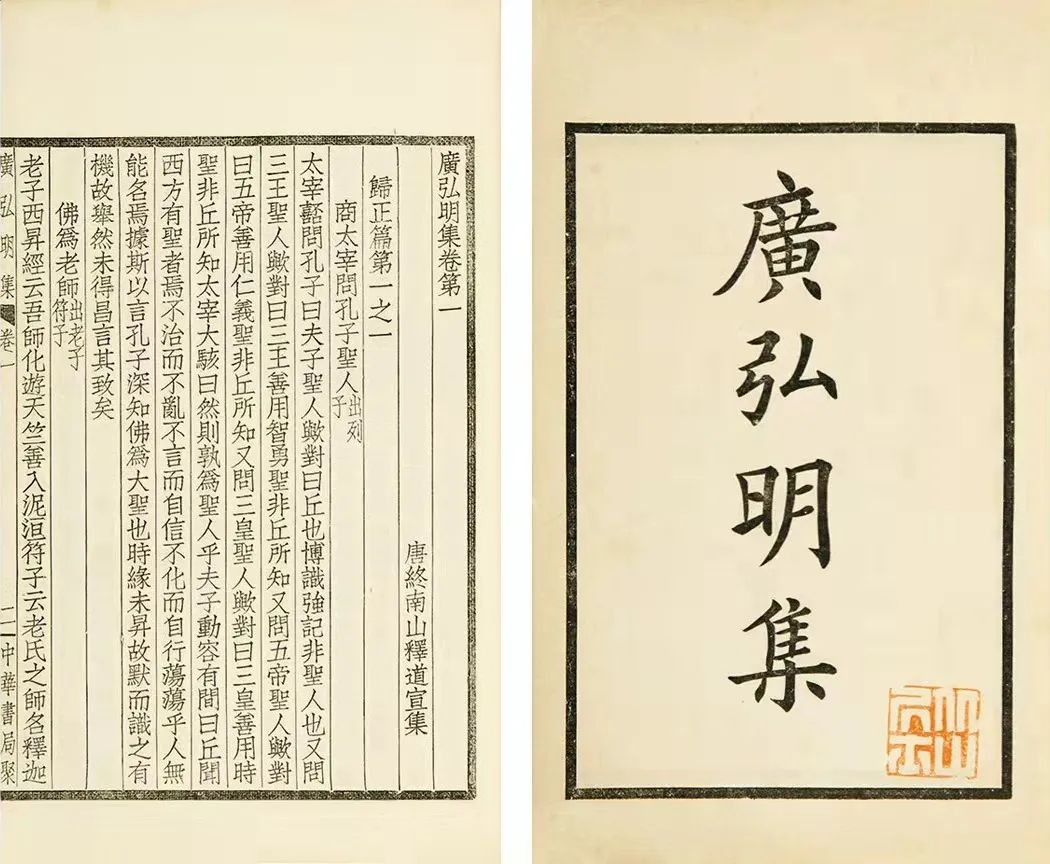 廣弘明集
廣弘明集卷第一
唐終南山釋道宣集
歸正篇第一之一
商太宰問孔子聖人出列子
太宰嚭問孔子曰夫子聖人歟對曰丘也博識強記非聖人也又問
三王聖人歟對曰三王善用智勇聖非丘所知又問五帝聖人歟對
曰五帝善用仁義聖非丘所知又問三皇聖人歟對曰三皇善用時
聖非丘所知太宰大駭曰然則孰爲聖人乎夫子動容有間曰丘聞
西方有聖者焉不治而不亂不言而自信不化而自行蕩蕩乎人無
能名焉據斯以言孔子深知佛爲大聖也時緣未昇故默而識之有
機故舉然未得昌言其致矣
佛爲老師出老子符子
老子西昇經云吾師化遊天竺善入泥洹符子云老氏之師名釋迦
廣弘明集 卷一 一 中華書局聚